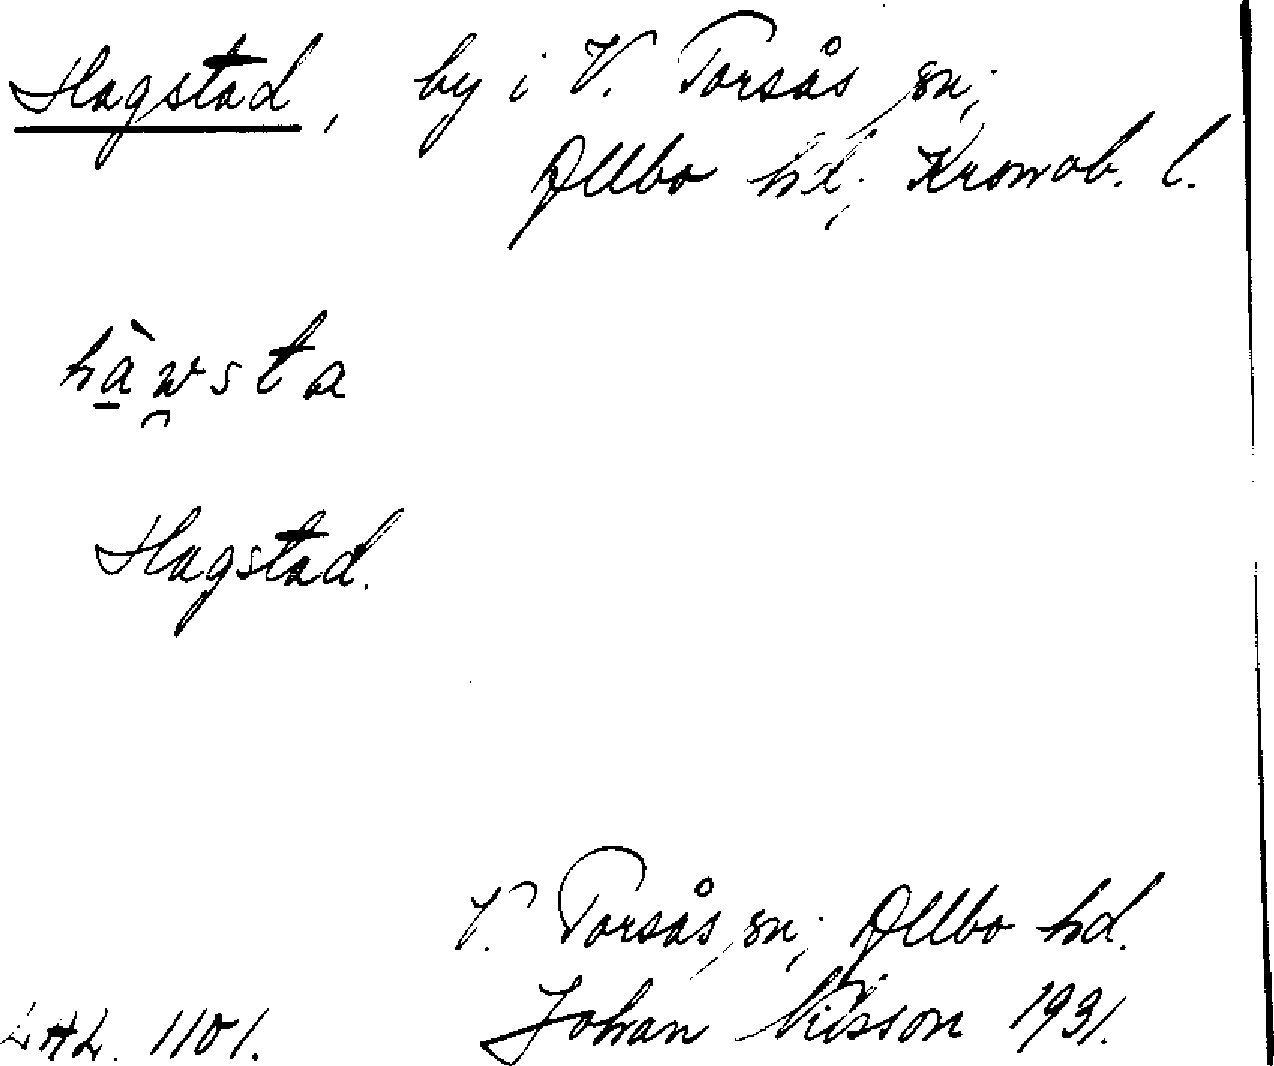 Hagstad, by i V. Torsås sn;
Allbo hd; Kronob. l.
hàw̯sta
Hagstad.
V. Torsås sn; Allbo hd.
LAL. 1101. Johan Nilsson 1931.